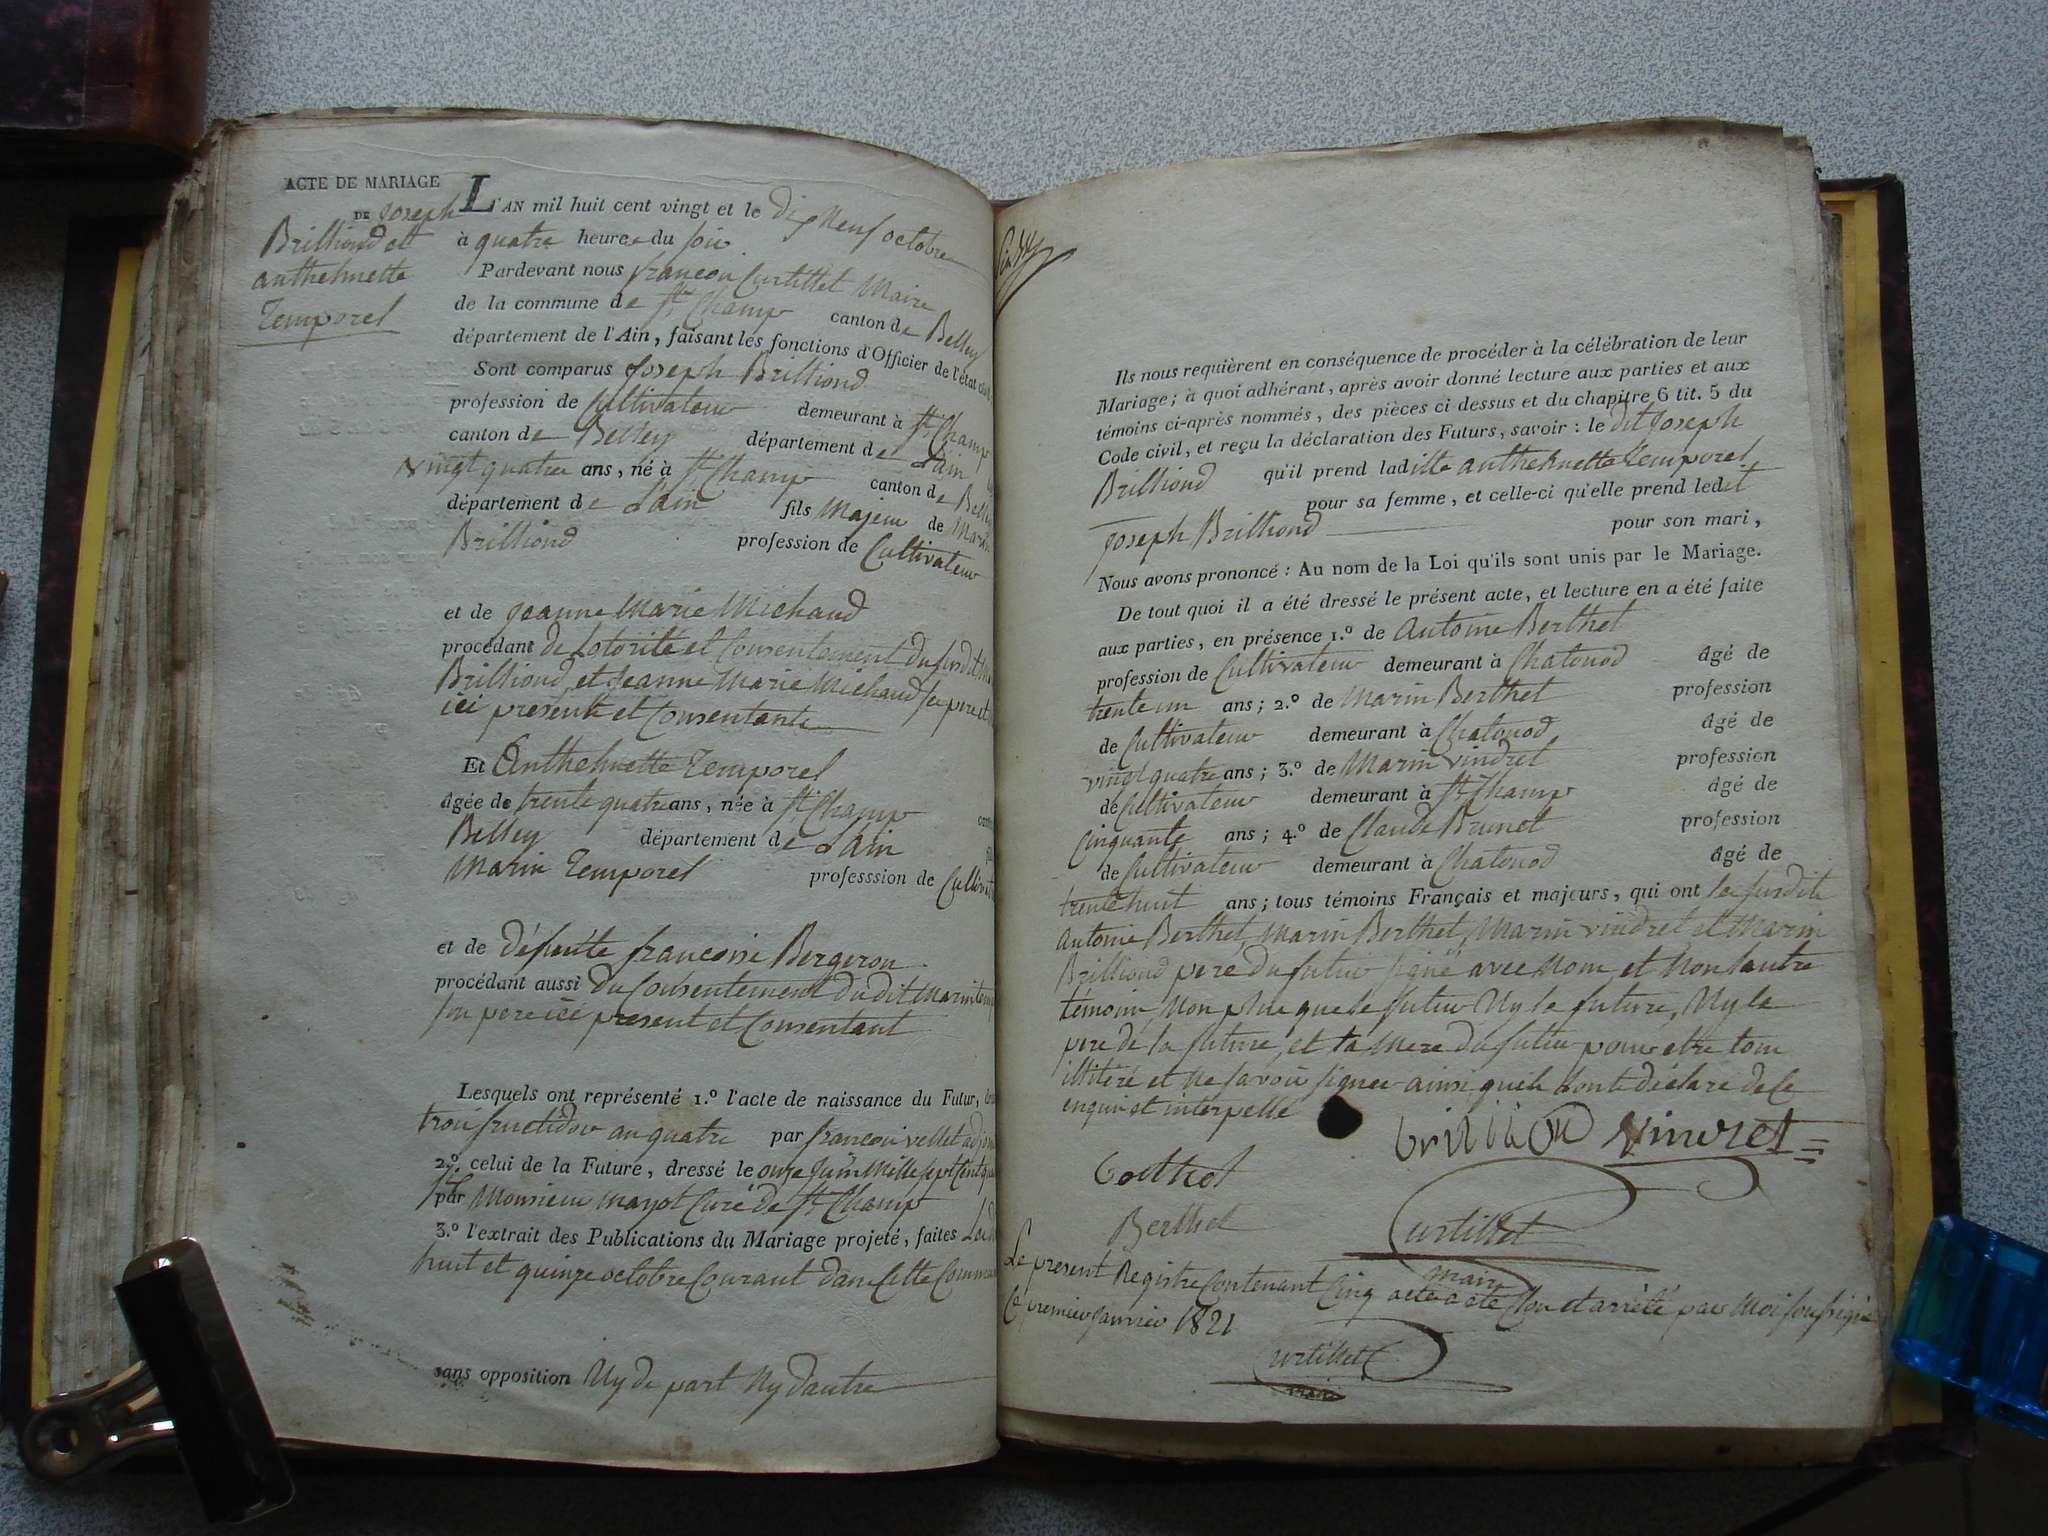 ACTE DE MARIAGE
DE Joseph
Brilliond et
anthelmette
Temporel
L'AN mil huit cent vingt et le dix neuf octobre
à quatre heures du soir
Pardevant nous francois Curtillet Maire
de la commune de St Champ canton de Belley
département de l'Ain, faisant les fonctions d'Officier de l'état civil
Sont comparus Joseph Brilliond
profession de Cultivateur demeurant à St Champ
canton de Belley département de Lain
vingt quatre ans, né à St Champ canton de Belley
département de Lain fils Majeur de Marin
Brilliond profession de Cultivateur
et de jeanne Marie Michaud
procédant de lotorite et Consentement du susdit
Brilliond et Jeanne Marie Michaud ses pere et
ici presents et Consentants
Et Anthelmette Temporel
âgée de trente quatre ans, née à St Champ
Belley département de Lain
Marin Temporel professsion de Cultivat
et de défunte francoise Bergeron
procédant aussi du Consentement dudit Marin
son pere ici present et Consentant
Lesquels ont représenté 1.º l'acte de naissance du Futur,
trois fructidor an quatre par francois vellet adjoint
2.º celui de la Future, dressé le onze juin Mille sept Cent
par Monsieur mayot Curé de St Champ
3.º l'extrait des Publications du Mariage projeté, faites
huit et quinze octobre Courant dans Cette Commune
sans opposition Ny de part Ny dautre
Ils nous requièrent en conséquence de procéder à la célébration de leur
Mariage; à quoi adhérant, après avoir donné lecture aux parties et aux
témoins ci-après nommés, des pièces ci dessus et du chapitre 6 tit. 5 du
Code civil, et reçu la déclaration des Futurs, savoir: le dit Joseph
Brilliond qu'il prend ladite anthelmette Temporel
pour sa femme, et celle-ci qu'elle prend ledit
joseph Brilliond pour son mari,
Nous avons prononcé: Au nom de la Loi qu'ils sont unis par le Mariage.
De tout quoi il a été dressé le présent acte, et lecture en a été faite
aux parties, en présence 1.º de Antoine Berthet
profession de Cultivateur demeurant à Chatonod âgé de
trente un ans; 2.º de Marin Berthet profession
de Cultivateur demeurant à Chatonod âgé de
vingt quatre ans; 3.º de Marin vindret profession
de Cultivateur demeurant à St Champ âgé de
Cinquante ans; 4.º de Claude Brunet profession
de Cultivateur demeurant à Chatonod âgé de
trente huit ans; tous témoins Français et majeurs, qui ont les susdits
antoine Berthet, Marin Berthet, Marin vindret et Marin
Brilliond pere du futur signé avec Nous, et Non lautre
témoin, Non plus que le futur Ny la future, Ny le
pere de la future, et la Mere du futur pour etre tous
illitéré et ne savoir signer ainsi quils lont déclaré de ce
enquis et interpellé
brilliond vindret
Berthet
Berthet
Curtillet
Maire
Le present Registre Contenant Cinq actes a été Clos et arrêté par Moi soussigné
Ce premier janvier 1821
Curtillet
maire